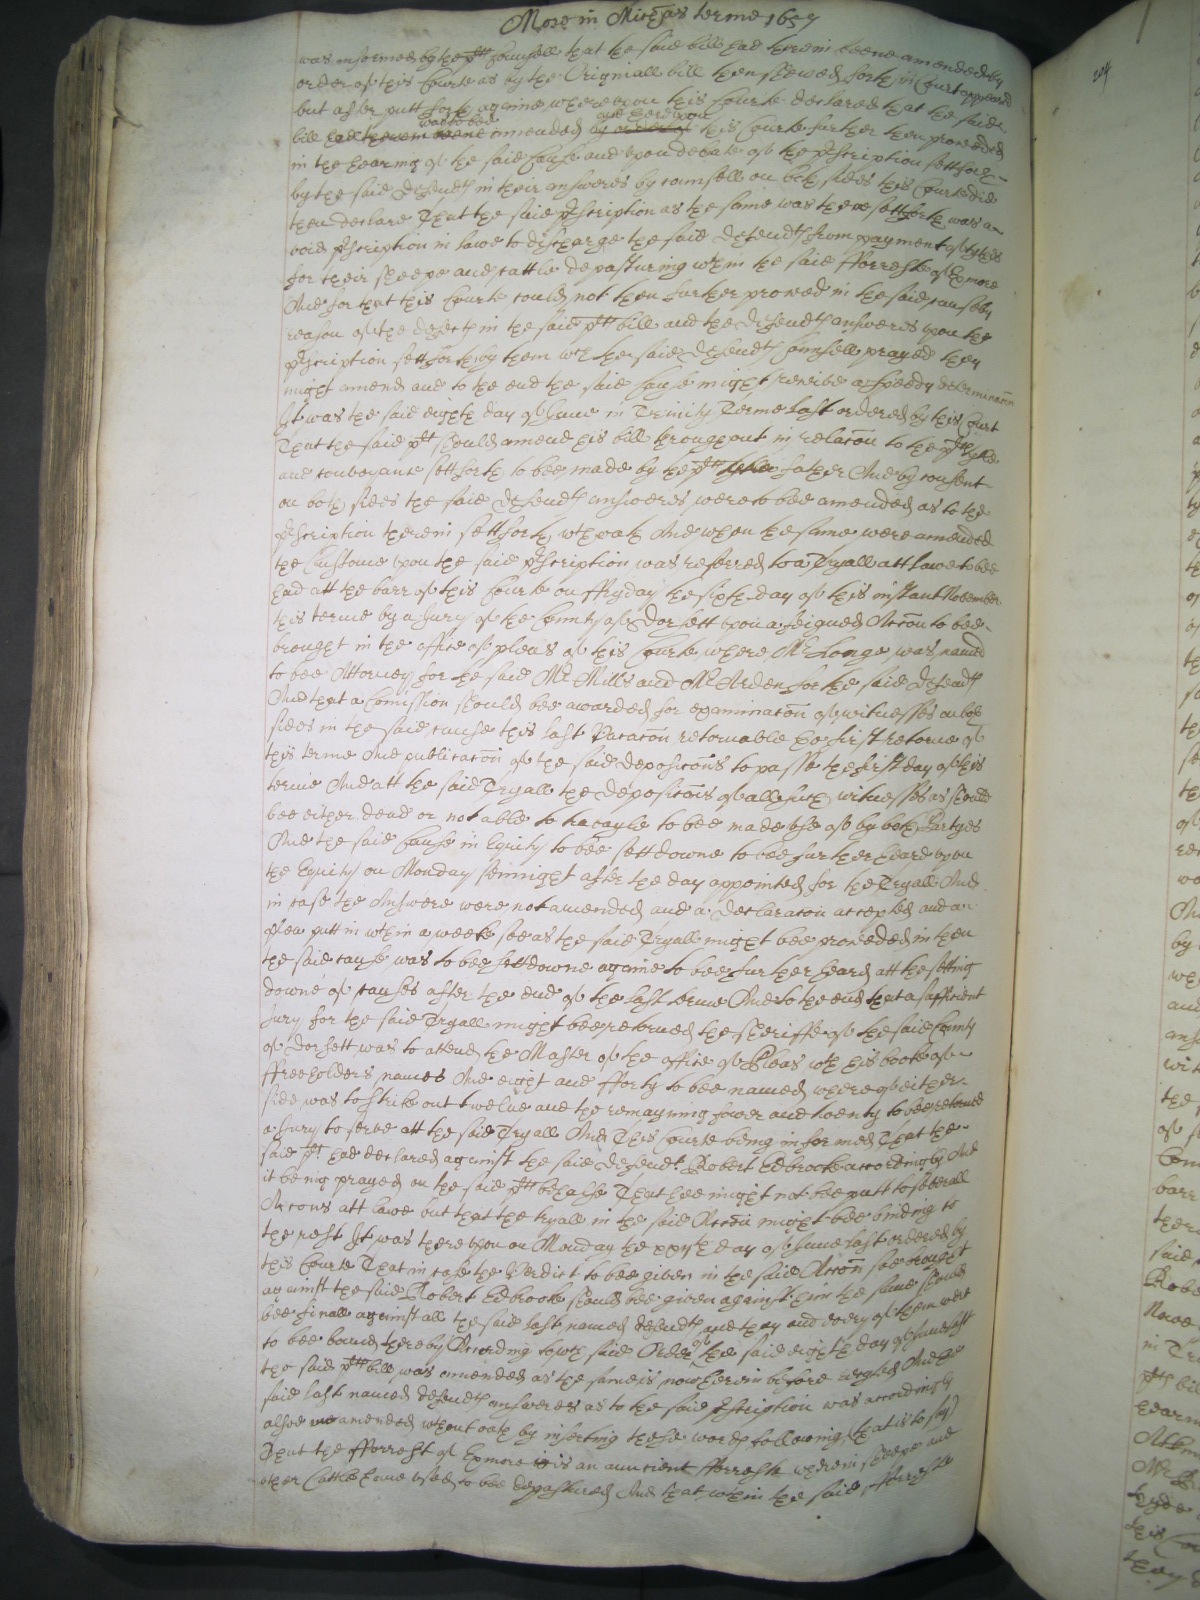 More in Mich̄as terme 1657
was informed by the plt Counsell that the said bill had therein beene amended by
order of this Courte as by the Originall bill then shewed forth in Court appeared
but after putt forth againe whereupon this Courte declared that the said
bill had therein beene was to bee amended by order of and thereupon this Courte further then proceeded
in the hearing of the said Cause and upon debate of the pscription sett forth
by the said Defendts in their answeres by counsell on both sides this Courte did
then declare That the said pscription as the same was there sett forth was a
void pscription in lawe to discharge the said Defendts from payment of tythes
for their sheepe and cattle depasturing wthin the said fforrest of Exmore
And for that this Courte could not then further proceed in the said cause by
reason of the defects in the said plts bill and the Defendts answeres upon the
pscription sett forth by them wch the said Defendts Counsell prayed they
might amend and to the end the said Cause might receive a speedy determinacōn
It was the said eighth day of June in Trinity Terme last ordered by this Court
That the said plt should amend his bill throughout in relacōn to the plts tytle
and conveyance sett forth to bee made by the plts father And by consent
on both sides the said Defendts answeres were to bee amended as to the
pscription therein sett forth wthout oath And when the same were amended
the Custome upon the said pscription was referred to a Tryall att lawe to bee
had att the barr of this Courte on ffryday the sixth day of this instant November
this terme by a Jury of the County of Dorsett upon a feigned Accōn to bee
brought in the office of pleas of this Courte where Mr Longe was named
to bee Attorney for the said Mr Mills and Mr Arden for the said Defendts
And that a Comission should bee awarded for examinacōn of witnesses on both
sides in the said cause this last Vacacōn retornable the first retorne of
this terme And publicacōn of the said deposicōns to passe the first day of this
terme And att the said Tryall the deposicōns of all such witnesses as should
bee either dead or not able to travayle to bee made use of by both Partyes
And the said Cause in Equity to bee sett downe to bee further heard upon
the Equity on Monday sennight after the day appointed for the Tryall And
in case the Answere were not amended and a Declaracōn accepted and a
plea putt in wthin a weeke soe as the said Tryall might bee proceeded in then
the said cause was to bee sett downe againe to bee further heard att the setting
downe of causes after the end of the last terme And to the end that a sufficient
Jury for the said Tryall might bee retorned the Sheriffe of the said County
of Dorsett was to attend the Master of the office of Pleas wth his booke of
ffreeholders names And eight and fforty to bee named whereof either
side was to strike out twelve and the remayning fower and twenty to bee retorned
a Jury to serve att the said Tryall And This Courte being informed That the
said plt had declared against the said Defendt Robert Edbrooke accordingly And
it being prayed on the said plts behalfe That hee might not bee putt to severall
Accōns att lawe but that the tryall in the said Accōn might bee binding to
the rest It was thereupon on Monday the xxijth day of June last ordered by
this Courte That in case the Verdict to bee given in the said Accōn soe brought
against the said Robert Edbrooke should bee given against him the same should
bee finall against all the said last named defendts and they and every of them were
to bee bound thereby According to wch said Order of the said eighth day of June last
the said plts bill was amended as the same is now herein before recyted And the
said last named defendts answeres as to the said pscription was accordingly
alsoe amended wthout oath by inserting these words following (that is to say)
That the fforrest of Exmore is an auncient fforrest wherein sheepe and
other Cattle have used to bee depastured And that wthin the said fforrest
204